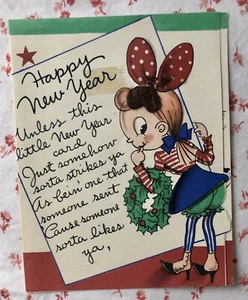 Happy
New Year
Unless this
little New Year
card
Just somehow
sorta strikes ya
As bein one that
someone sent
Cause someone
sorta likes
ya,